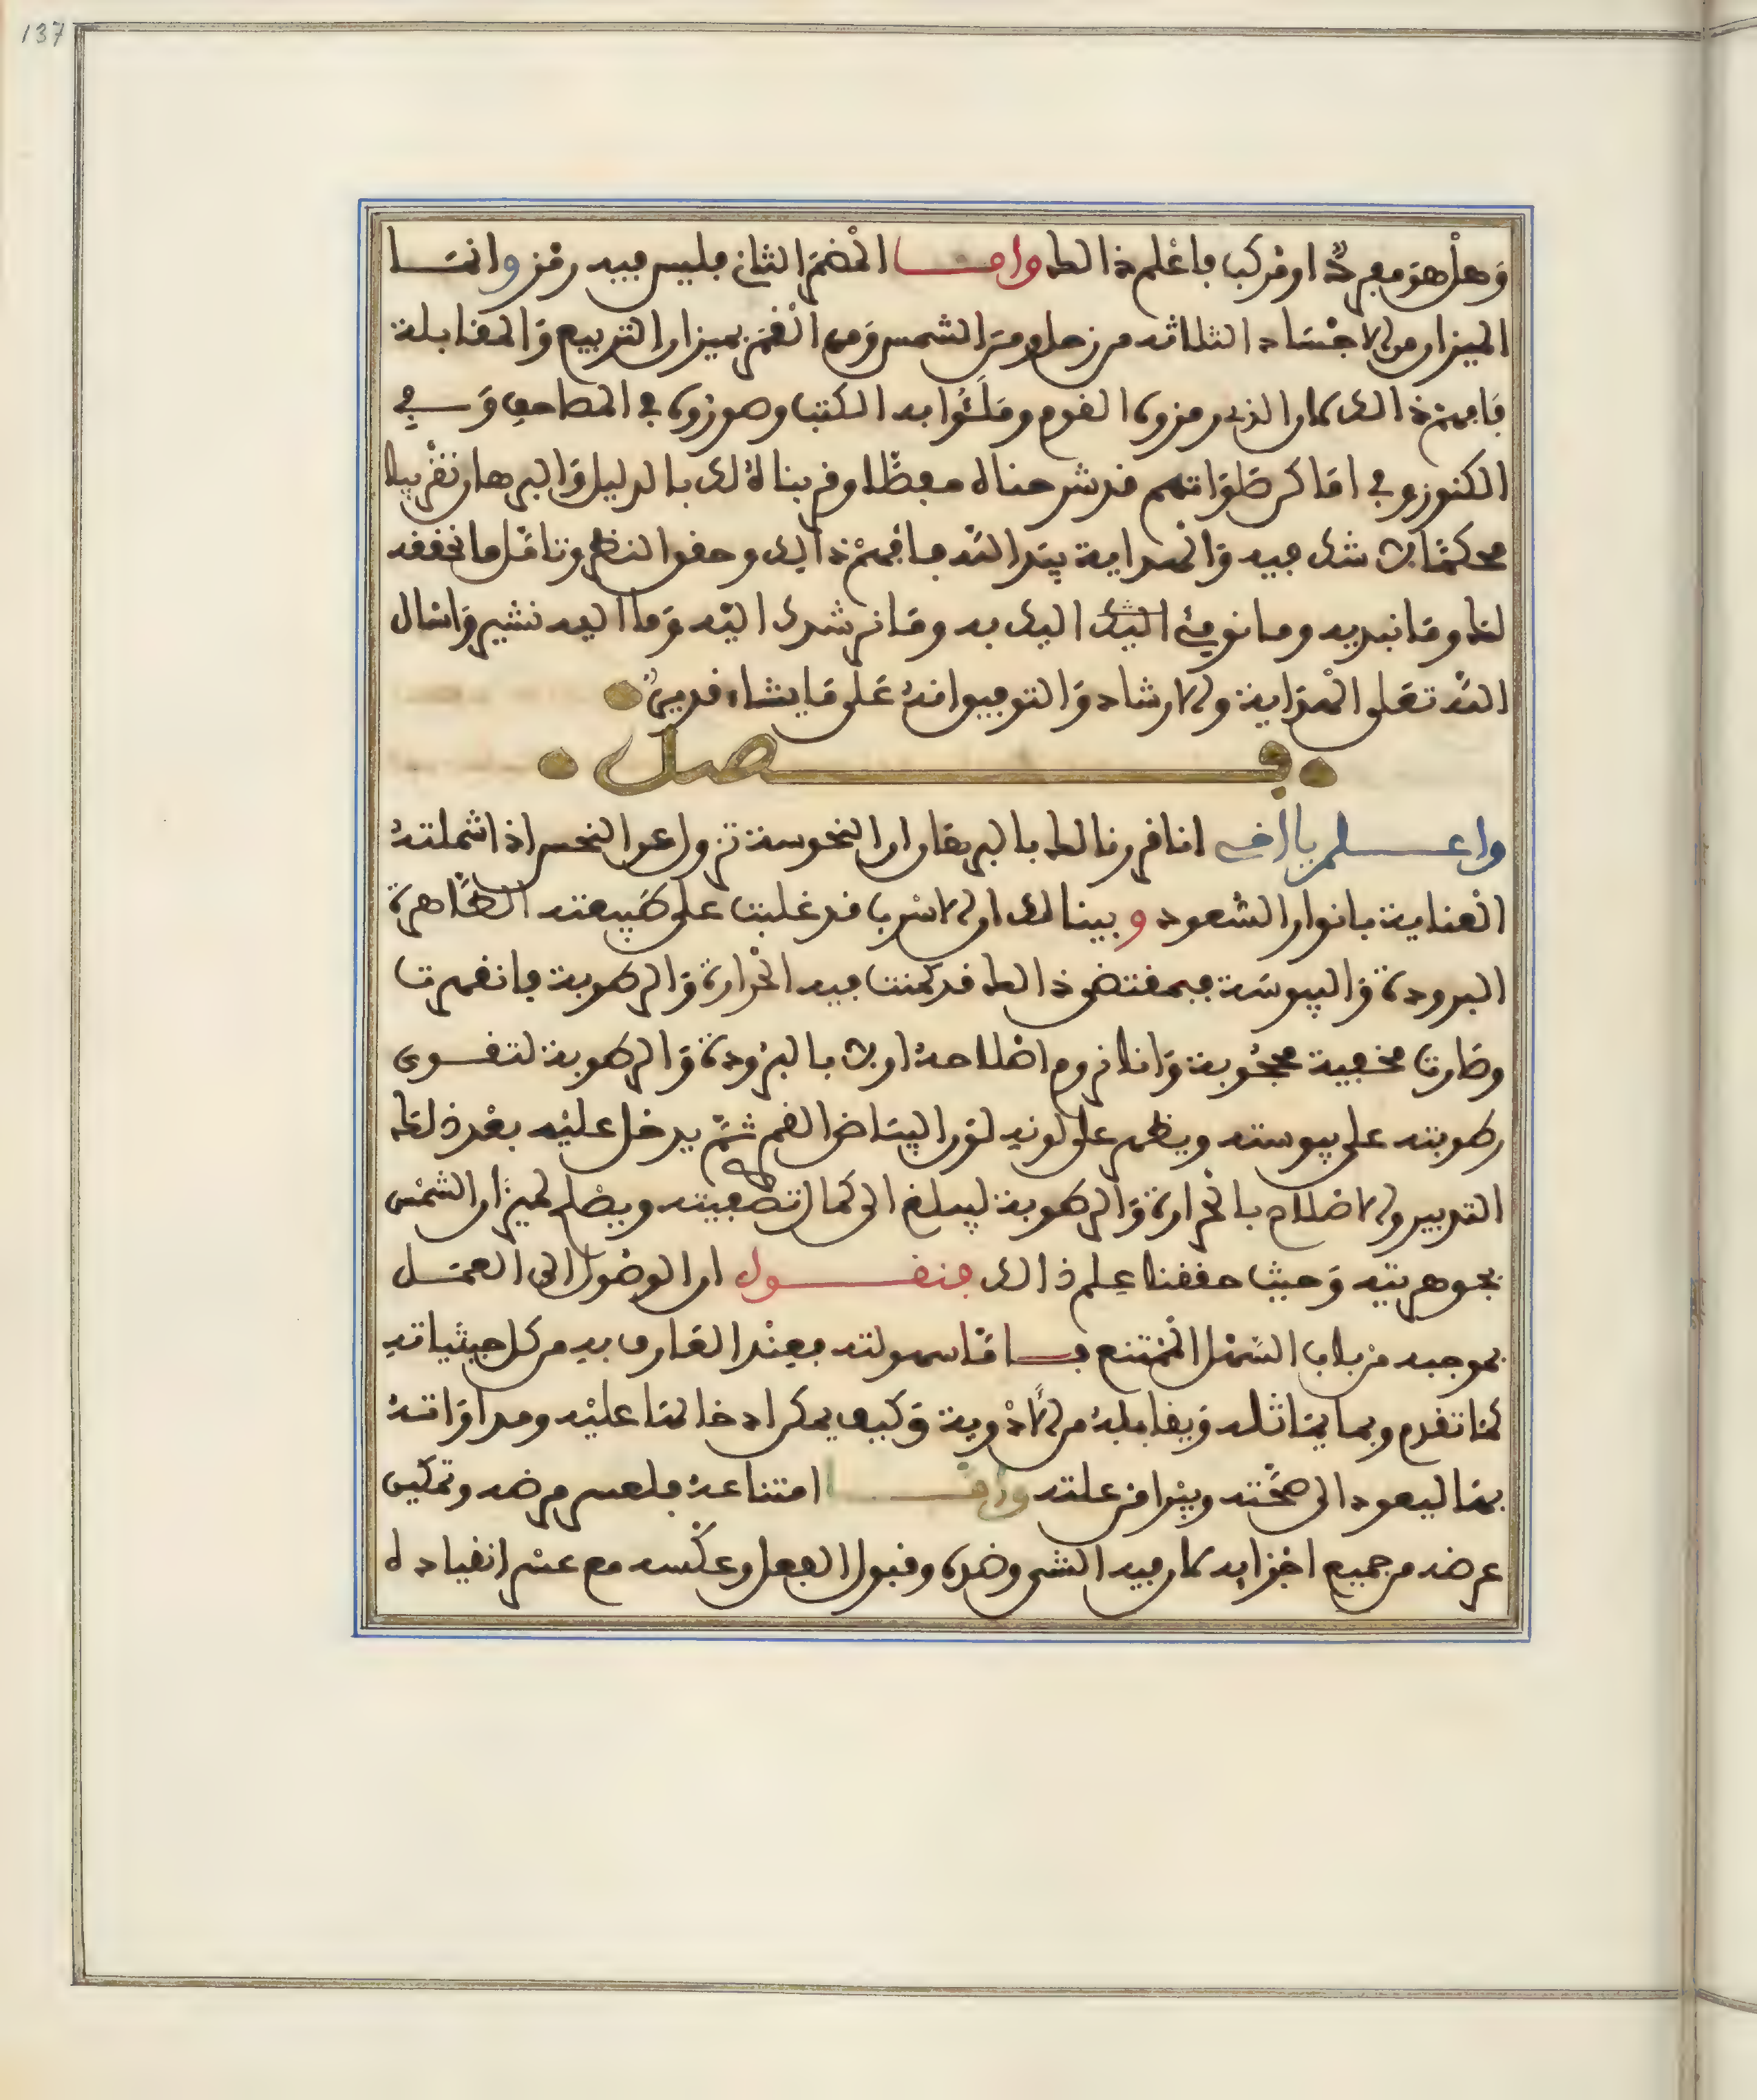 137
وهل هو مفرد او مركب فاعلم ذالك واما المضمر الثاني فليس فيه رمز وانما
الميزان من الاجساد الثلاثة من زحل ومن الشمس ومن القمر بميزان التربيع والمقابلة
فافهم ذالك كان الذي رمزوه القوم وملئوا به الكتب وصوروه في المصاحف وفي
الكنوز وفي اماكن صلواتهم قد شرحناه مفصلا وقربناه لك بالدليل والبرهان تقريبا
محكما لا شك فيه والهداية بيد الله فافهم ذالك وحقق النظر وتامل ما نحققه
لك وما نبديه وما نومئ اليك به وما نرشدك اليه وما اليه نشير واسال
الله تعلى الهداية والارشاد والتوفيق انه على ما يشاء قدير
فصل
واعلم يا اخي انا قررنا لك بالبرهان ان النحوسة تزول عن النحس اذا شملته
العناية بانوار السعود وبينا لك ان الاسرب قد غلبت على طبيعته الظاهرة
البرودة واليبوسة فبمقتضى ذالك قد كمنت فيه الحرارة والرطوبة فانقهرت
وصارت مخفية محجوبة وانا نروم اصلاحه اولا بالبرودة والرطوبة لتقوى
رطوبته على يبوسته ويظهر على لونه لون البياض القمر ثم يدخل عليه بعد ذلك
التدبير والاصلاح بالحرارة والرطوبة ليبلغ الى كمال تصفيته ويصلح لميزان الشمس
بجوهريته وحيث حققنا علم ذالك فنقول ان الوصول الى العمل
بموجبه من باب السهل الممتنع فاما سهولته فعند العارف به من كل حيثياته
كما تقدم وبما يماثله ويقابله من الادوية وكيف يمكن ادخالها عليه ومداواته
بها ليعود الى صحته ويبرا من علته واما امتناعه فلعسر مرضه وتمكين
عرضه من جميع اجزايه كان فيه الشي وضده وقبول الفعل وعكسه مع عسر انقياده